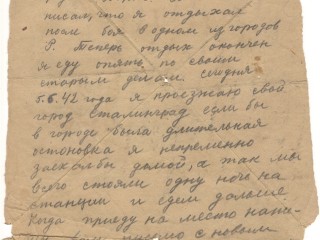 писал, что я отдыхал
после боя в одном из городов
Р. Теперь отдых окончен
я еду опять по своим
старым делам сегодня
5.6.42 года я проезжаю свой
город Сталинград если бы
в городе была длительная
остоновка я непременно
заехал бы домой, а так мы
всего стояли одну ночь на
станции и едем дальше
Когда приеду на место напи-
письмо с новым